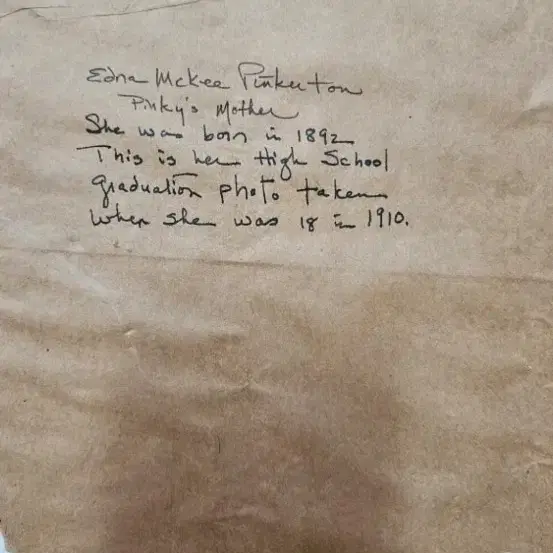 Edna McKee Pinkerton
Pinky's Mother
She was born in 1892
This is her High School
graduation photo taken
when she was 18 in 1910.